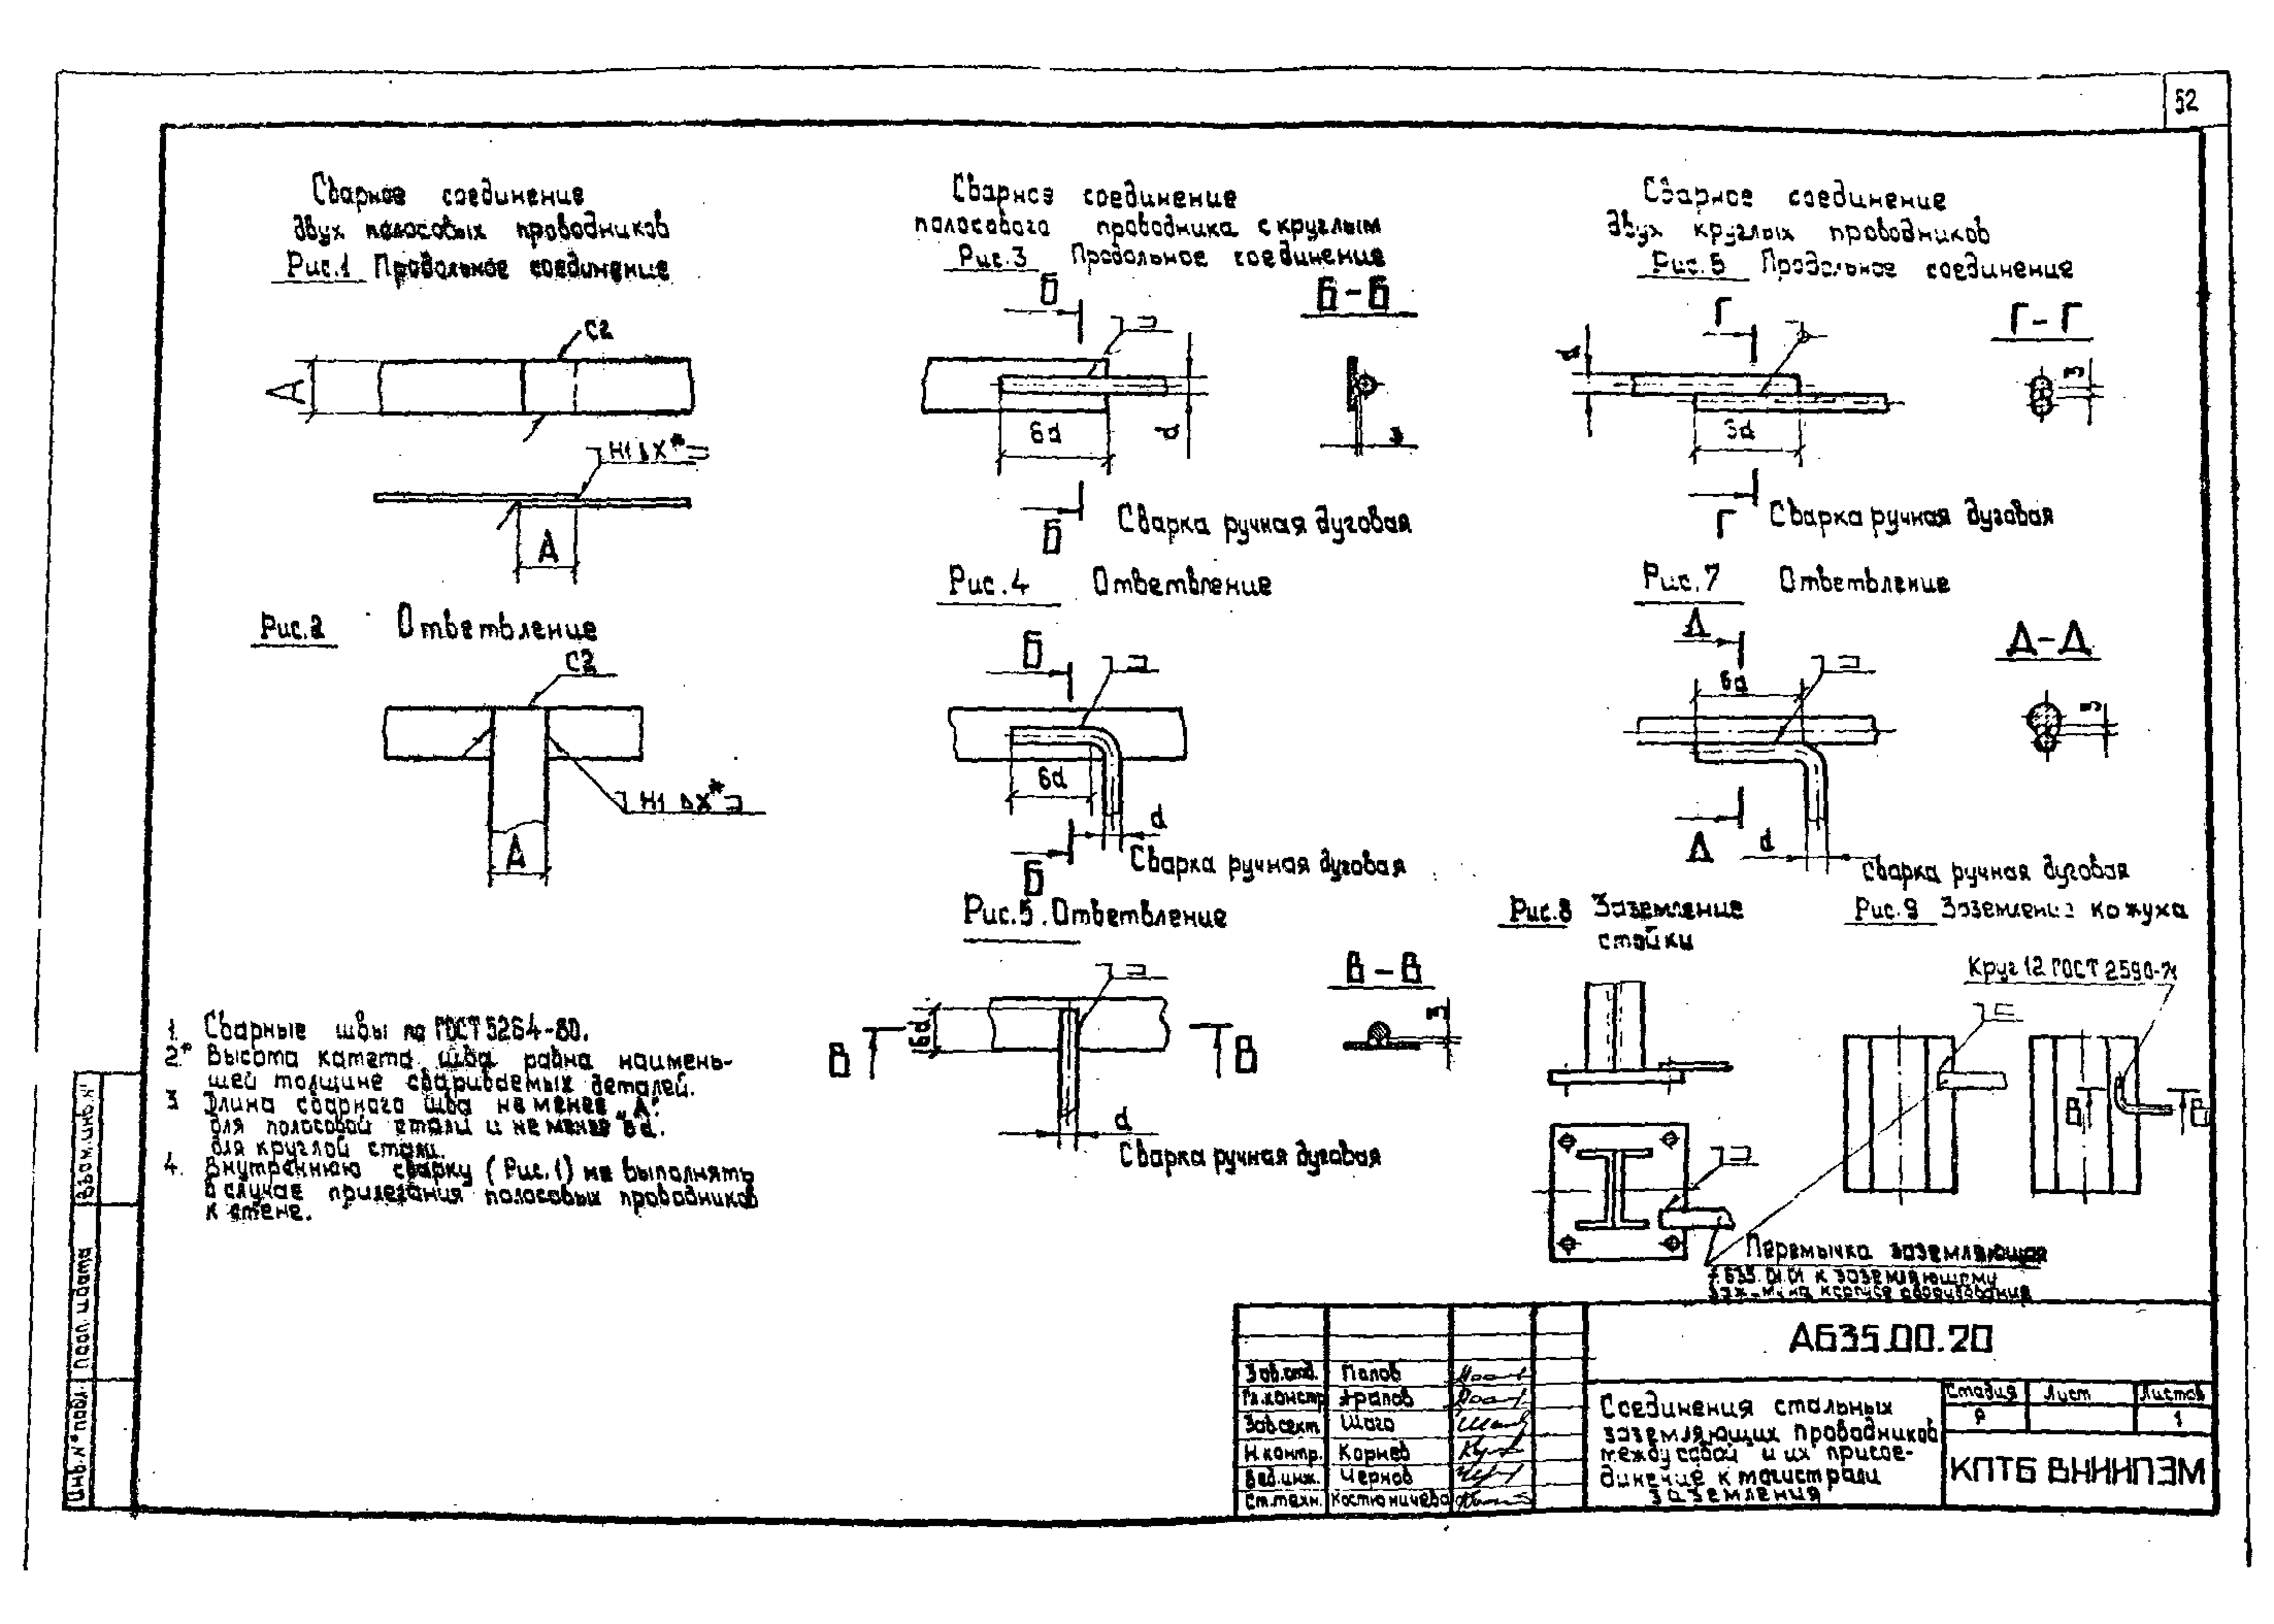 52
Сварное соединение
двух полосовых проводников
Рис.1 Продольное соединение
С2
А
Н1 Δ Х*
А
Рис.2 Ответвление
С2
Н1 Δ Х*
А
1. Сварные швы по ГОСТ 5264-80.
2* Высота катета шва равна наимень-
шей толщине свариваемых деталей.
3 Длина сварного шва не менее „А"
для полосовой стали и не менее 6d.
для круглой стали.
4. Внутреннюю сварку (Рис.1) не выполнять
в случае прилегания полосовых проводников
к стене.
Сварное соединение
полосового проводника с круглым
Рис.3 Продольное соединение
Б
Б-Б
6d
d
3
Б
Сварка ручная дуговая
Рис.4 Ответвление
Б
6d
d
Б
Сварка ручная дуговая
Рис.5. Ответвление
В-В
6d
В
В
3
d
Сварка ручная дуговая
Сварное соединение
двух круглых проводников
Рис.6 Продольное соединение
Г
Г-Г
d
3
Г
Сварка ручная дуговая
Рис.7 Ответвление
Д
Д-Д
6d
3
Д
d
Сварка ручная дуговая
Рис.8 Заземление
стойки
Рис.9 Заземление кожуха
Круг 12 ГОСТ 2590-71
В
В
Перемычка заземляющая
А635.01.01 к заземляющему
на корпусе оборудования
А635.00.20
Зав.отд. Попов
Гл.констр Арапов
Зав.сект Шаго
Н.контр. Корнев
Вед.инж. Чернов
Ст.техн. Костюничева
Соединения стальных
заземляющих проводников
между собой и их присое-
динение к магистрали
заземления
Стадия Лист Листов
Р 1
КПТБ ВНИИПЭМ
Взам.инв.N°
Подп. и дата
Инв.N° подл.